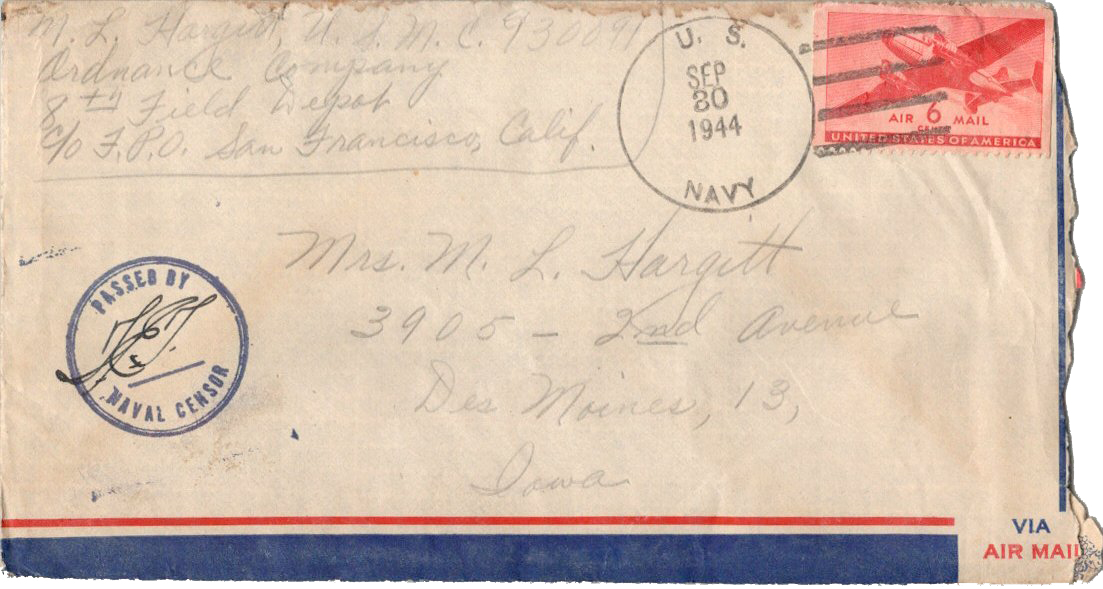 M. L. Hargitt, U. S. M. C. 930091
Ordnance Company
8th Field Depot
c/o F.P.O. San Francisco, Calif.
U. S.
SEP
30
1944
NAVY
AIR 6 MAIL
CENTS
UNITED STATES OF AMERICA
Mrs. M. L. Hargitt
3905 - 2nd Avenue
Des Moines, 13,
Iowa
PASSED BY
NAVAL CENSOR
VIA
AIR MAIL